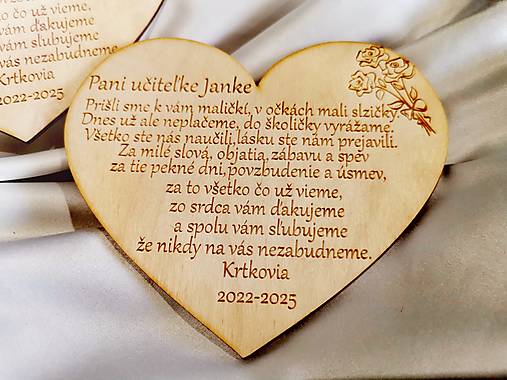 čo už vieme,
vám ďakujeme
vám sľubujeme
vás nezabudneme.
Krtkovia
2022-2025
Pani učiteľke Janke
Prišli sme k vám maličkí, v očkách mali slzičky.
Dnes už ale neplačeme, do školičky vyrážame.
Všetko ste nás naučili, lásku ste nám prejavili.
Za milé slová, objatia, zábavu a spev
za tie pekné dni, povzbudenie a úsmev,
za to všetko čo už vieme,
zo srdca vám ďakujeme
a spolu vám sľubujeme
že nikdy na vás nezabudneme.
Krtkovia
2022-2025